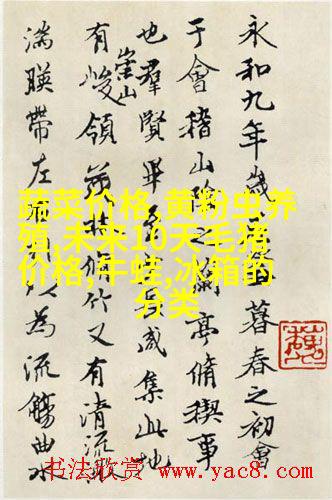 永和九年歲暮春之初會
于會稽山陰之蘭亭脩稧事
也羣賢畢至少長咸集此地
有崇山峻領茂林脩竹又有清流激
湍暎帶左右引以為流觴曲水
蔬菜价格,黄粉虫养
殖,未来10天毛猪
价格,牛蛙,冰箱的
分类
书法欣赏 www.yac8.com